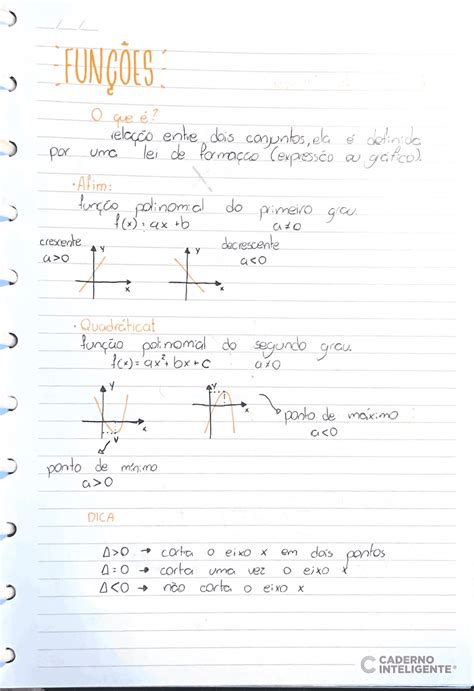 FUNÇÕES
O que é?
relação entre dois conjuntos, ela é definida
por uma lei de formação (expressão ou gráfico).
• Afim:
função polinomial do primeiro grau.
f(x) = ax + b a≠0
crescente decrescente
a>0 a<0
y y
x x
• Quadrática:
função polinomial do segundo grau.
f(x) = ax² + bx + c a≠0
y y
x x
ponto de máximo
a<0
V
ponto de mínimo
a>0
DICA
Δ>0 → corta o eixo x em dois pontos
Δ=0 → corta uma vez o eixo x
Δ<0 → não corta o eixo x
CADERNO
INTELIGENTE®